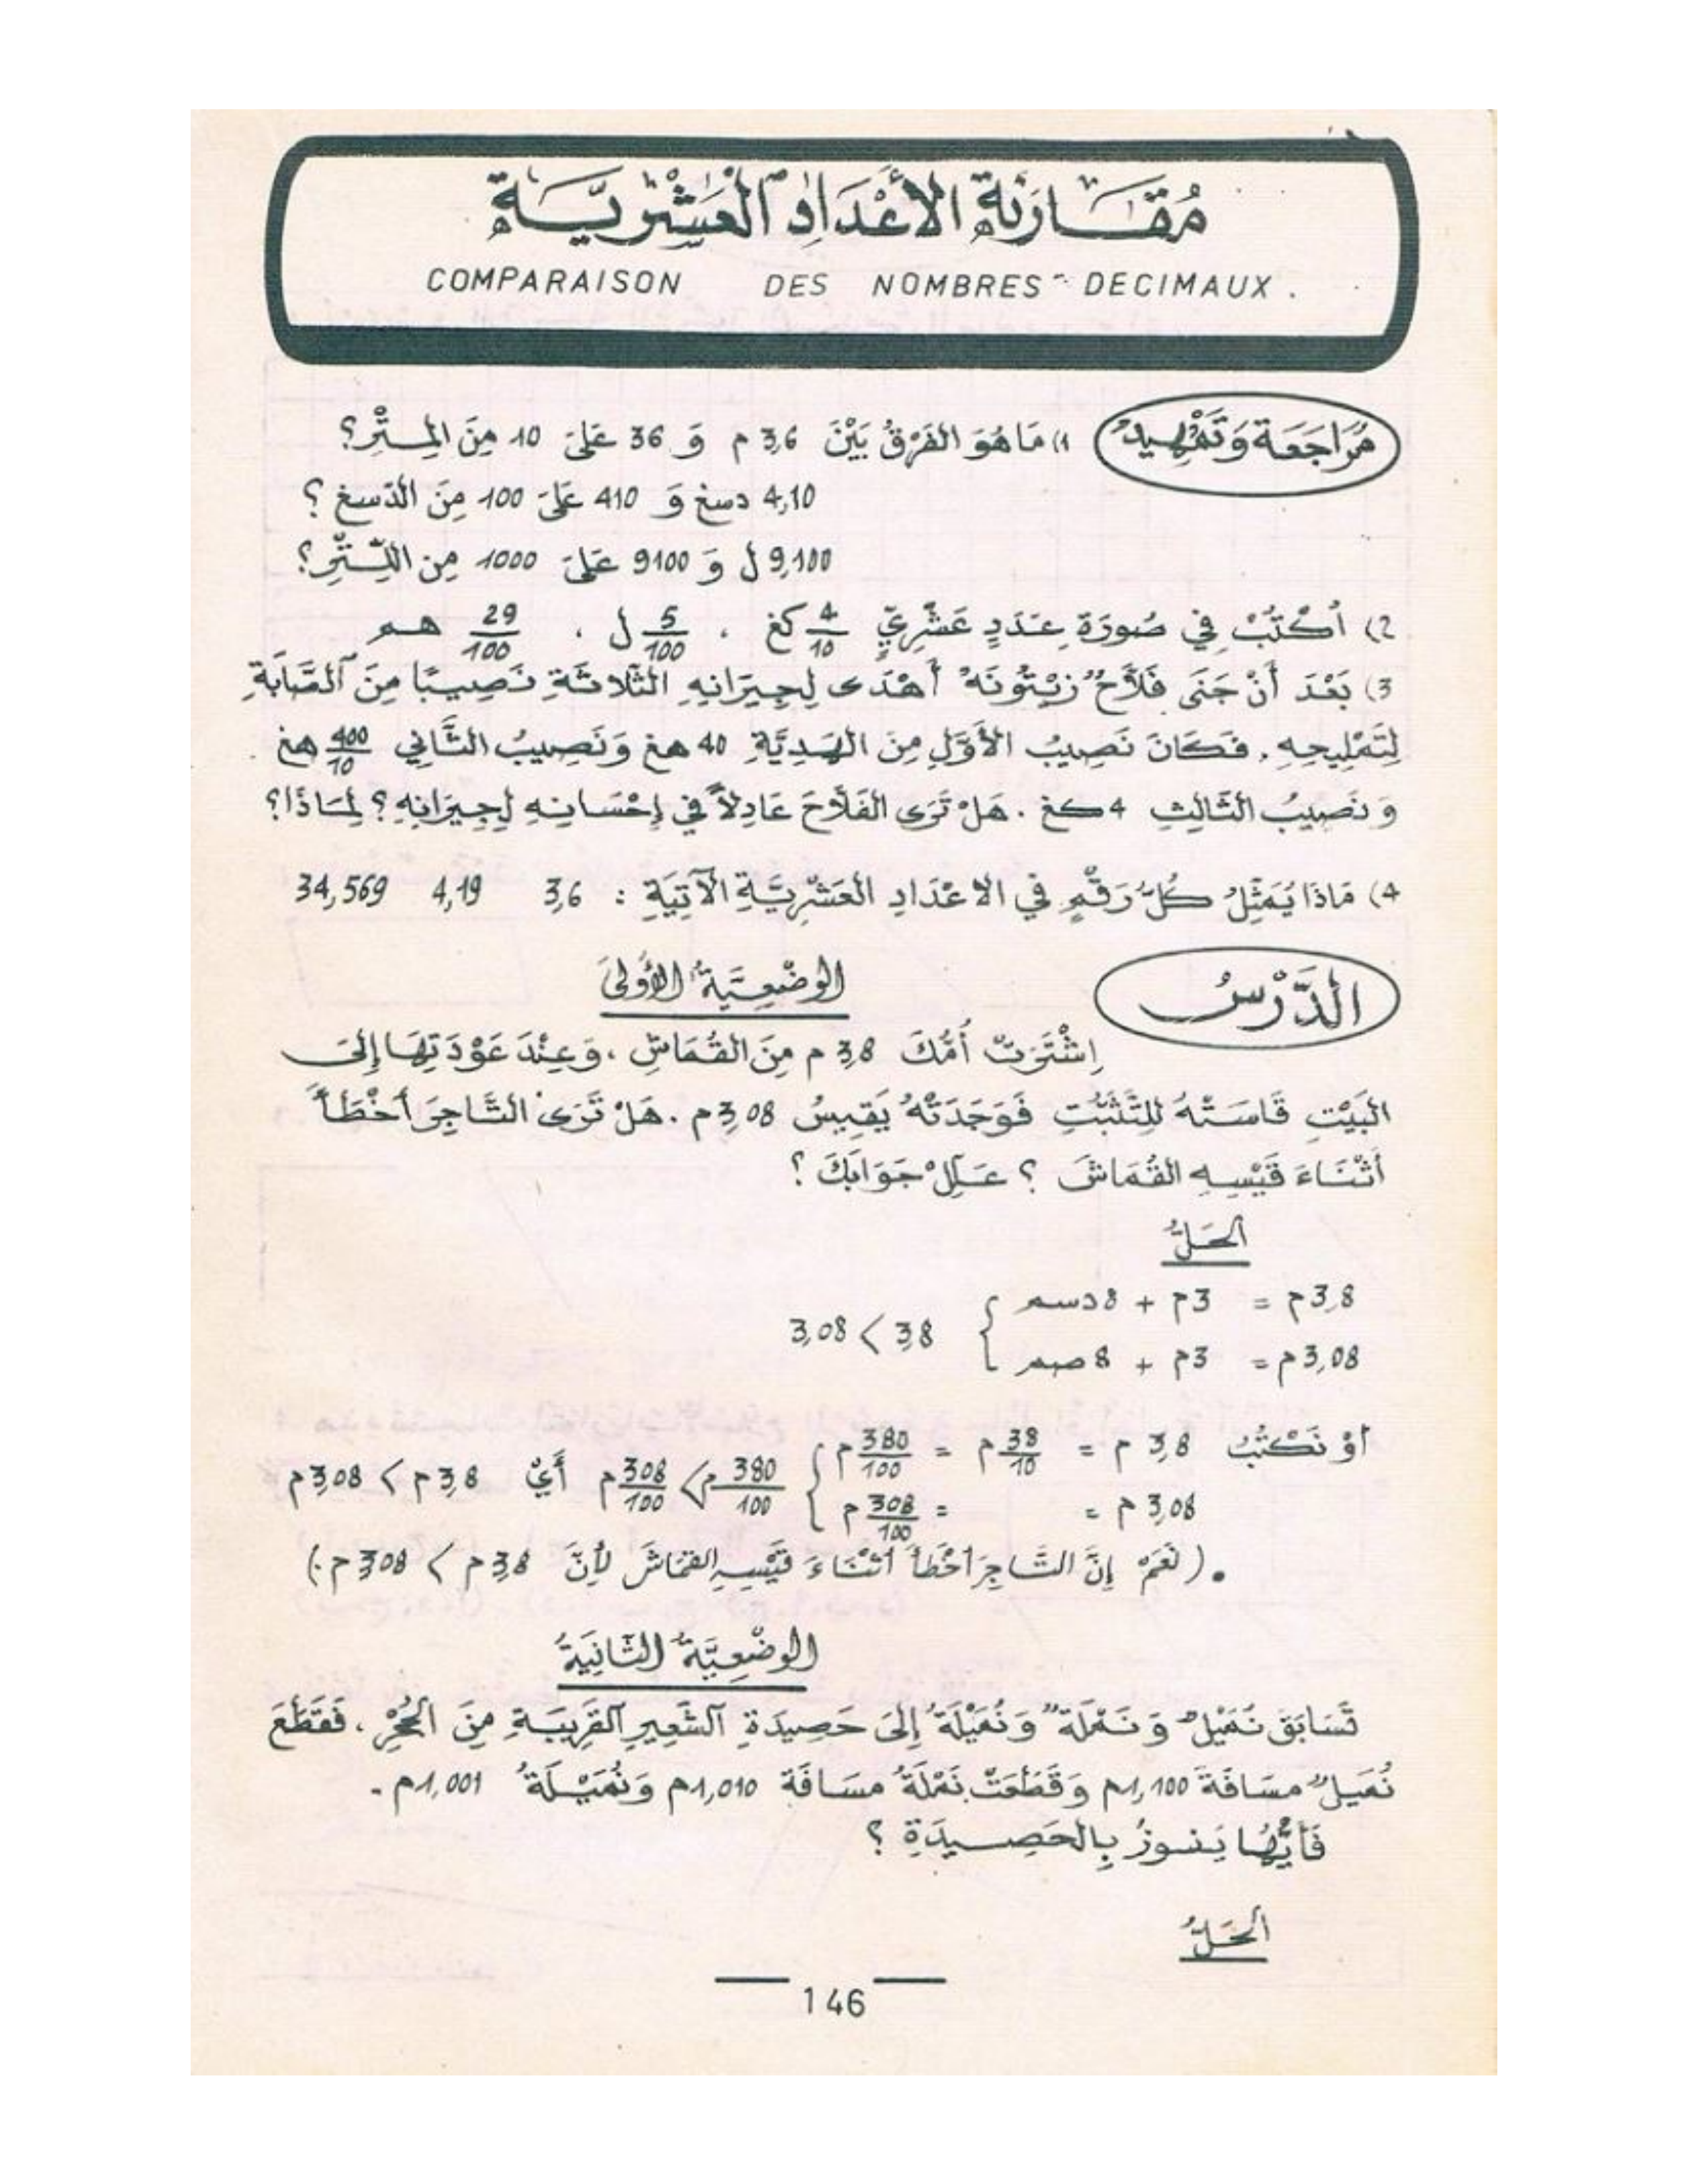 مُقَارَنَةُ الأَعْدَادِ الْعَشْرِيَّةِ
COMPARAISON DES NOMBRES DECIMAUX.
مُرَاجَعَة وَتَمْهِيد
1) مَا هُوَ الفَرْقُ بَيْنَ 3,6 م وَ 36 عَلَى 10 مِنَ المِتْرِ؟
4,10 دسغ وَ 410 عَلَى 100 مِنَ الدّسغ ؟
9,100 ل وَ 9100 عَلَى 1000 مِن اللِّتْرِ؟
2) اُكْتُبْ فِي صُورَةِ عَدَدٍ عَشْرِيٍّ 4/10 كغ ، 5/100 ل ، 29/100 هم
3) بَعْدَ أَنْ جَنَى فَلاَّحٌ زَيْتُونَهُ أَهْدَى لِجِيرَانِهِ الثَّلاَثَةِ نَصِيبًا مِنَ الصَّابَةِ
لِتَمْلِيحِهِ. فَكَانَ نَصِيبُ الأَوَّلِ مِنَ الهَدِيَّةِ 40 هغ وَنَصِيبُ الثَّانِي 400/10 هغ
وَ نَصِيبُ الثَّالِثِ 4 كغ . هَلْ تَرَى الفَلاَّحَ عَادِلاً فِي إِحْسَانِهِ لِجِيرَانِهِ؟ لِمَاذَا؟
4) مَاذَا يُمَثِّلُ كُلُّ رَقْمٍ فِي الاعْدَادِ العَشْرِيَّةِ الآتِيَةِ : 3,6 4,19 34,569
الدَّرْسُ
الوَضْعِيَّةُ الأُولَى
اِشْتَرَتْ أُمُّكَ 3,8 م مِنَ القُمَاشِ ، وَعِنْدَ عَوْدَتِهَا إِلَى
البَيْتِ قَاسَتْهُ لِلتَّثَبُّتِ فَوَجَدَتْهُ يَقِيسُ 3,08 م . هَلْ تَرَى التَّاجِرَ أَخْطَأَ
أَثْنَاءَ قَيْسِهِ القُمَاشَ ؟ عَلِّلْ جَوَابَكَ ؟
الحَلُّ
3,8 م = 3 م + 8 دسم
3,08 م = 3 م + 8 صم } 3,8 > 3,08
أوْ نَكْتُبُ 3,8 م = 38/10 م = 380/100 م
3,08 م = = 308/100 م } 380/100 م > 308/100 م أَيْ 3,8 م > 3,08 م
• ( نَعَمْ إِنَّ التَّاجِرَ أخْطَأَ أثْنَاءَ قَيْسِهِ القمَاشَ لِأنَّ 3,8 م > 3,08 م . )
الوَضْعِيَّةُ الثَّانِيَةُ
تَسَابَقَ نُمَيْلٌ وَ نَمْلَةٌ وَ نُمَيْلَةٌ إِلَى حَصِيدَةِ الشَّعِيرِ القَرِيبَةِ مِنَ الجُحْرِ ، فَقَطَعَ
نُمَيلٌ مسَافَةَ 1,100 م وَ قَطَعَتْ نَمْلَةُ مسَافَة 1,010 م وَنُمَيْلَةُ 1,001 م .
فَأَيُّهَا يَفوزُ بِالحَصِيدَةِ ؟
الحَلُّ
146